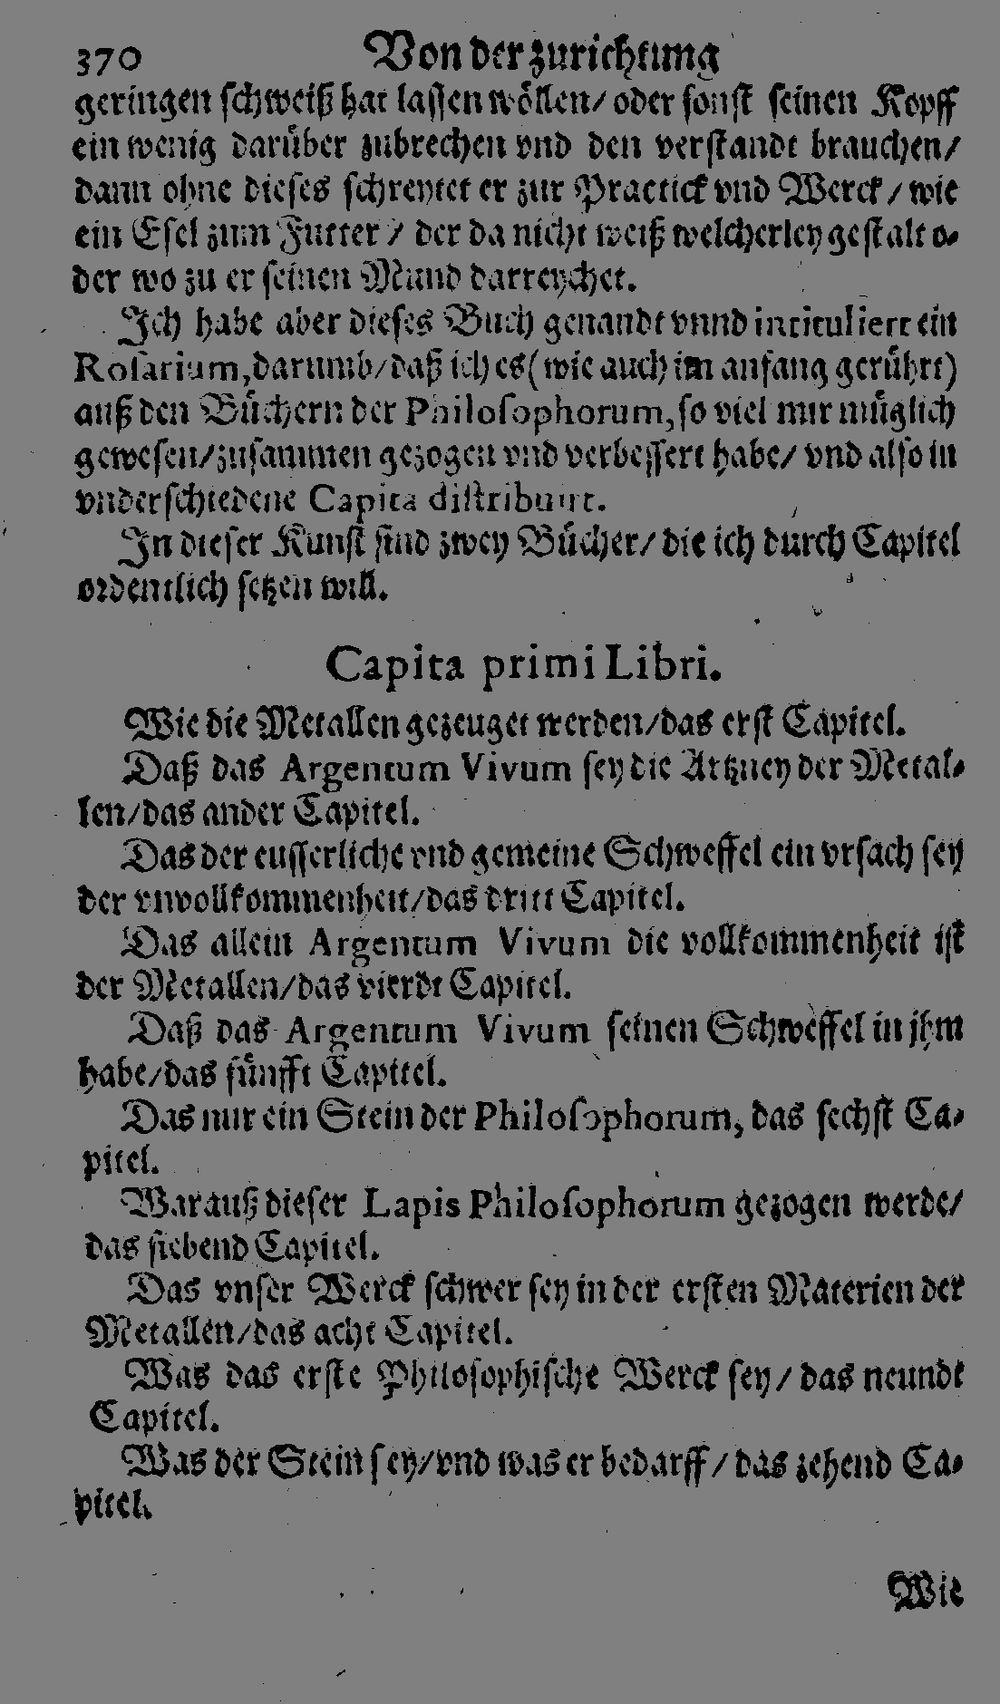 370 Von der zurichtung
geringen schweiß hat lassen wöllen/ oder sonst seinen Kopff
ein wenig darüber zubrechen vnd den verstandt brauchen/
dann ohne dieses schreytet er zur Practick vnd Werck / wie
ein Esel zum Futter / der da nicht weiß welcherley gestalt o-
der wo zu er seinen Mund darreychet.
Ich habe aber dieses Buch genandt vnnd intituliert ein
Rosarium, darumb/daß ich es (wie auch im anfang gerührt)
auß den Büchern der Philosophorum, so viel mir müglich
gewesen/zusammen gezogen vnd verbessert habe/ vnd also in
vnderschiedene Capita distribuirt.
In dieser Kunst sind zwey Bücher/ die ich durch Capitel
ordentlich setzen will.
Capita primi Libri.
Wie die Metallen gezeuget werden/das erst Capitel.
Daß das Argentum Vivum sey die Artzney der Metal-
len/das ander Capitel.
Das der eusserliche vnd gemeine Schweffel ein vrsach sey
der vnvollkommenheit/das dritt Capitel.
Das allein Argentum Vivum die vollkommenheit ist
der Metallen/das vierdt Capitel.
Daß das Argentum Vivum seinen Schweffel in jhm
habe/das fünfft Capittel.
Das nur ein Stein der Philosophorum, das sechst Ca-
pitel.
Warauß dieser Lapis Philosophorum gezogen werde/
das siebend Capitel.
Das vnser Werck schwer sey in der ersten Materien der
Metallen/das acht Capitel.
Was das erste Philosophische Werck sey / das neundt
Capitel.
Was der Stein sey/vnd was er bedarff / das zehend Ca-
pitel.
Wie